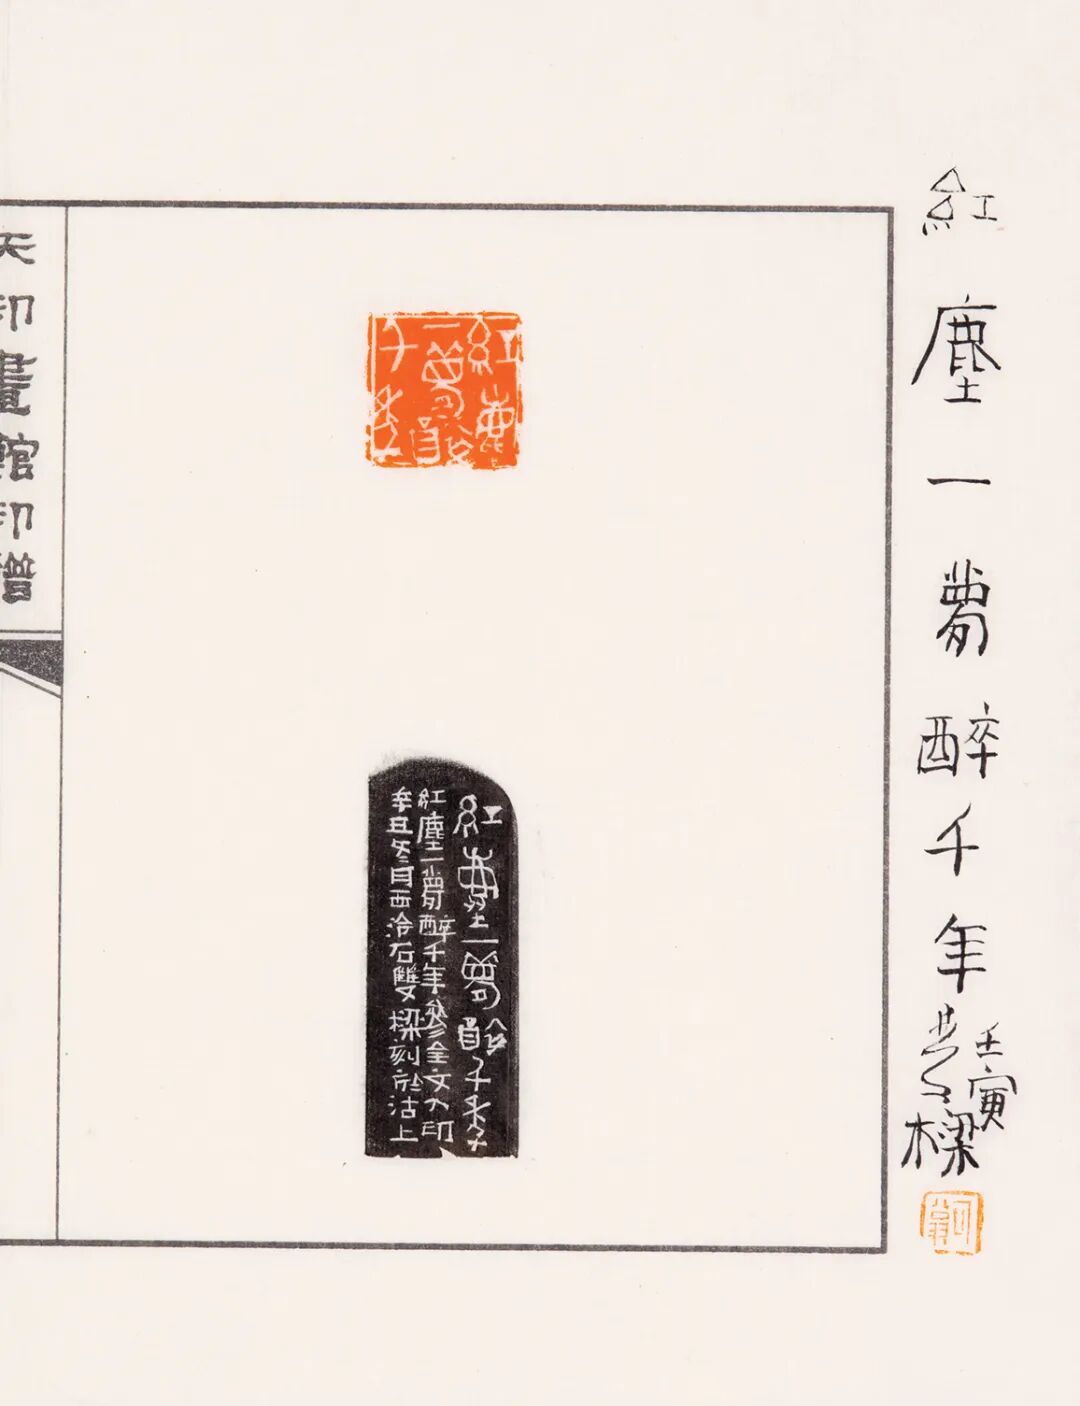 紅塵一夢醉千年
壬寅
樑
紅塵一夢醉千年
紅塵一夢醉千年
紅塵一夢醉千年參金文入印
辛丑冬月西泠石雙樑刻於沽上
印畫館印譜